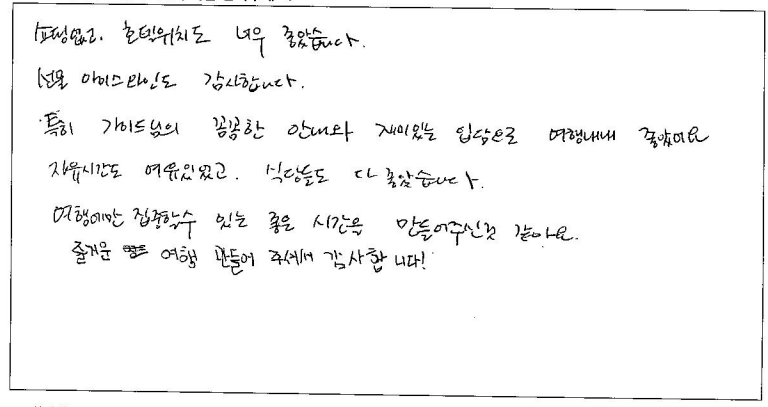 쇼핑없고, 호텔위치도 너무 좋았습니다.
선물 아이스와인도 감사합니다.
특히 가이드님의 꼼꼼한 안내와 재미있는 입담으로 여행내내 좋았어요
자유시간도 여유있었고. 식당들도 다 좋았습니다.
여행에만 집중할수 있는 좋은 시간을 만들어주신것 같아요.
즐거운 여행 만들어 주셔서 감사합니다!